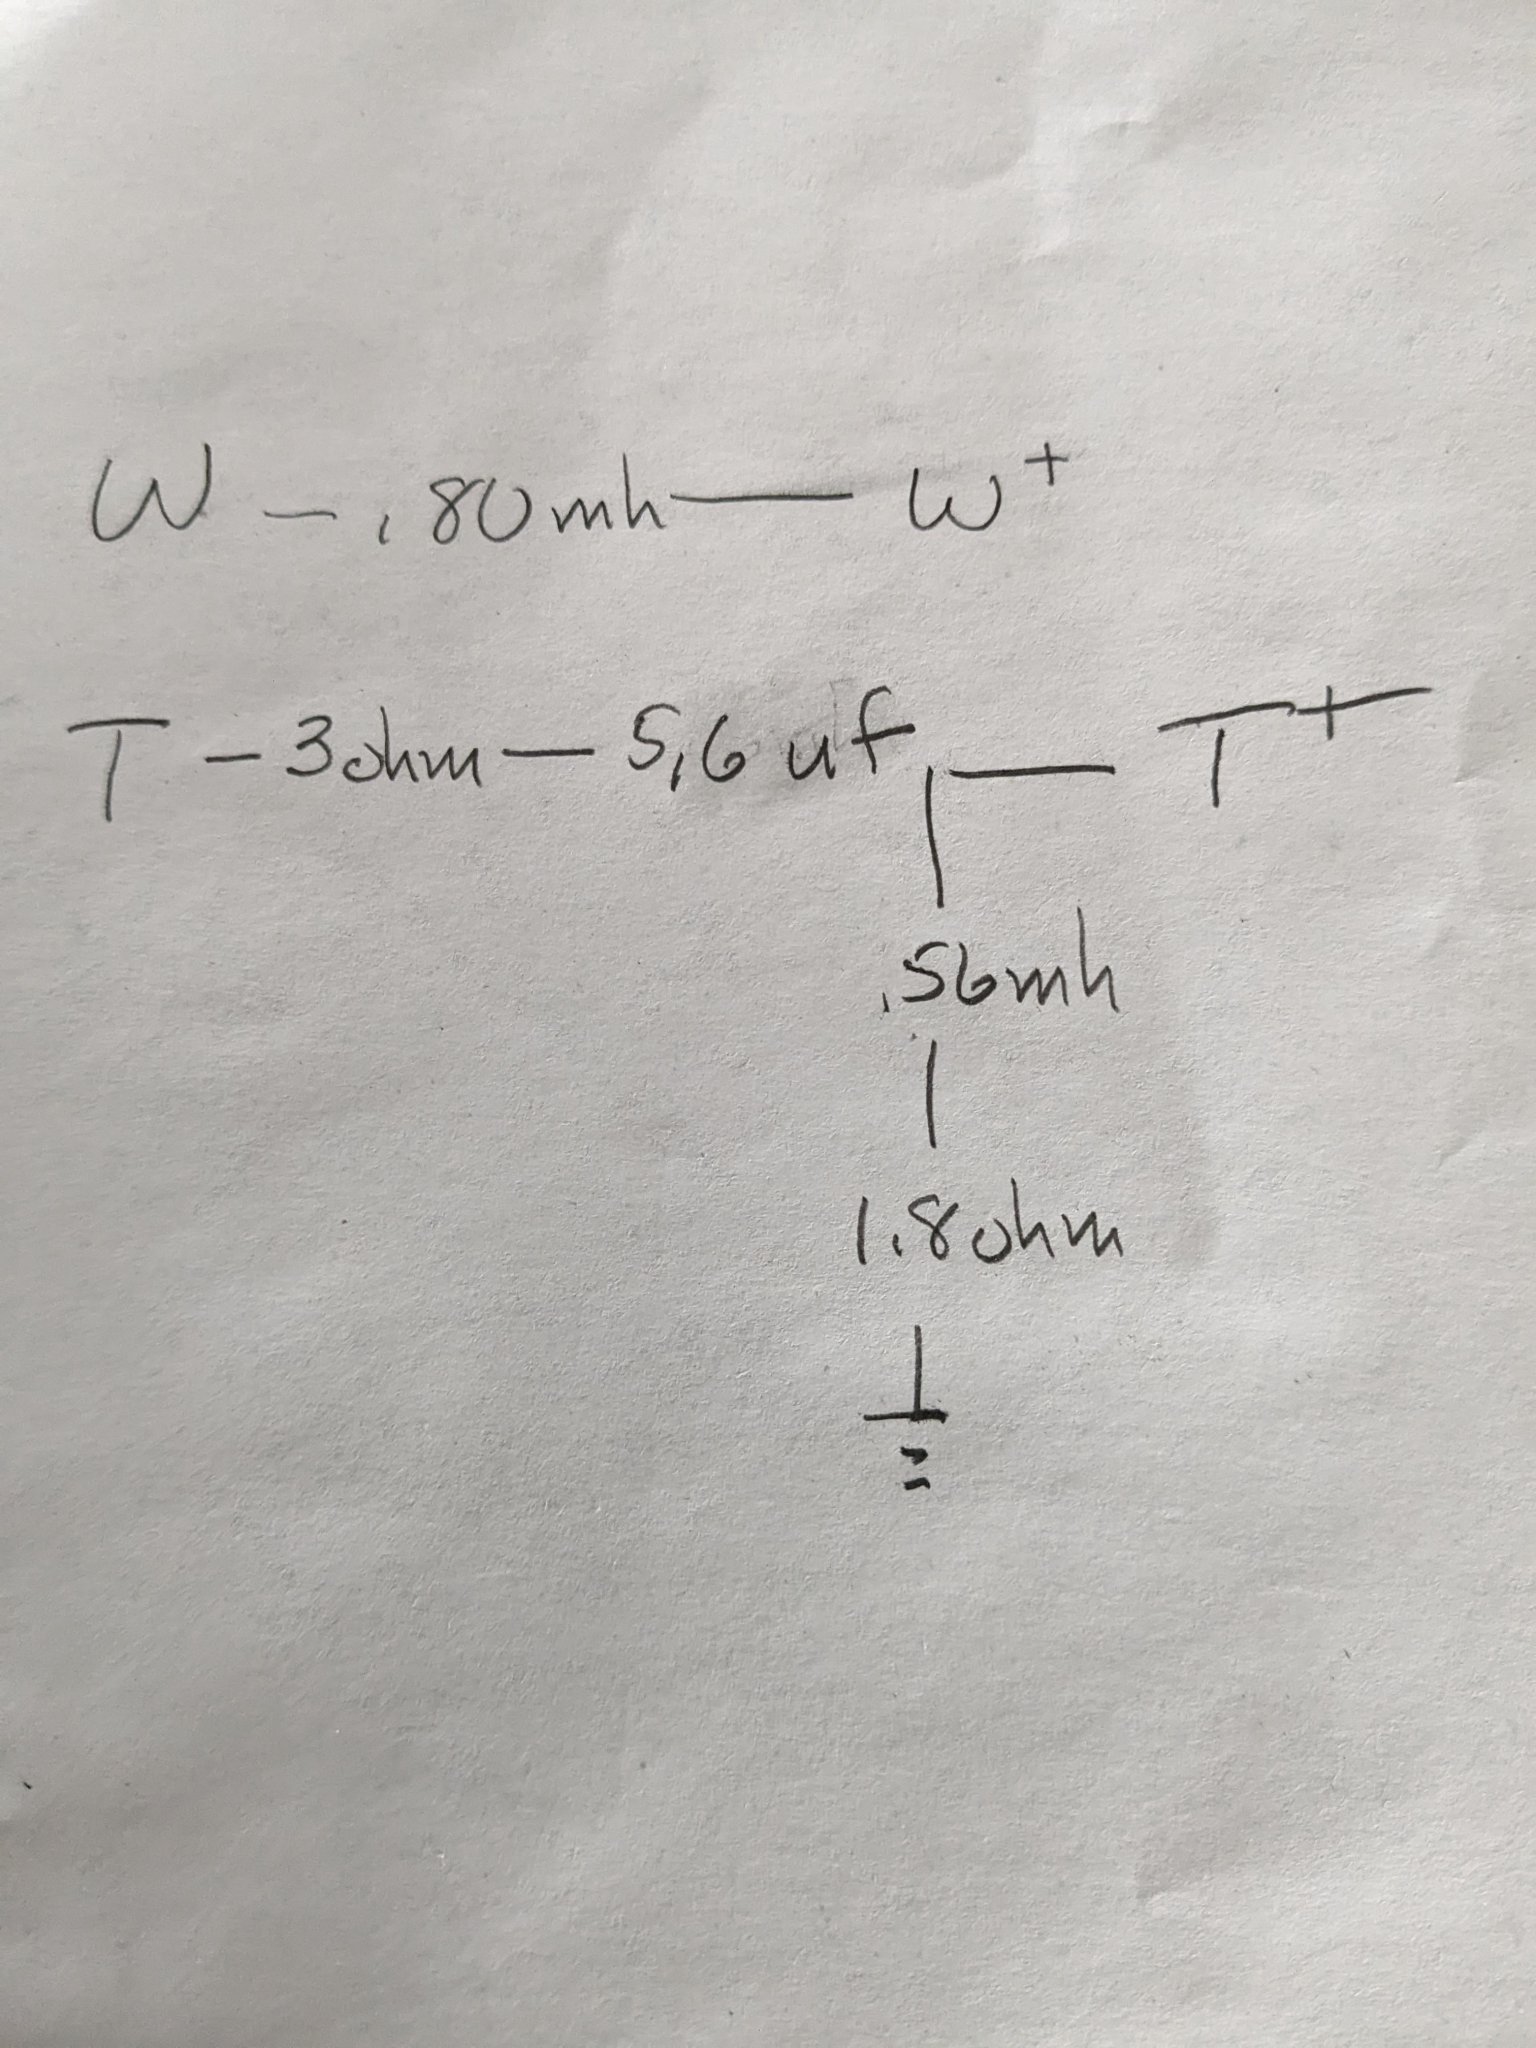 W - .80mh — W+
T - 3ohm — 5.6 uf — T+
.56mh
1.8ohm